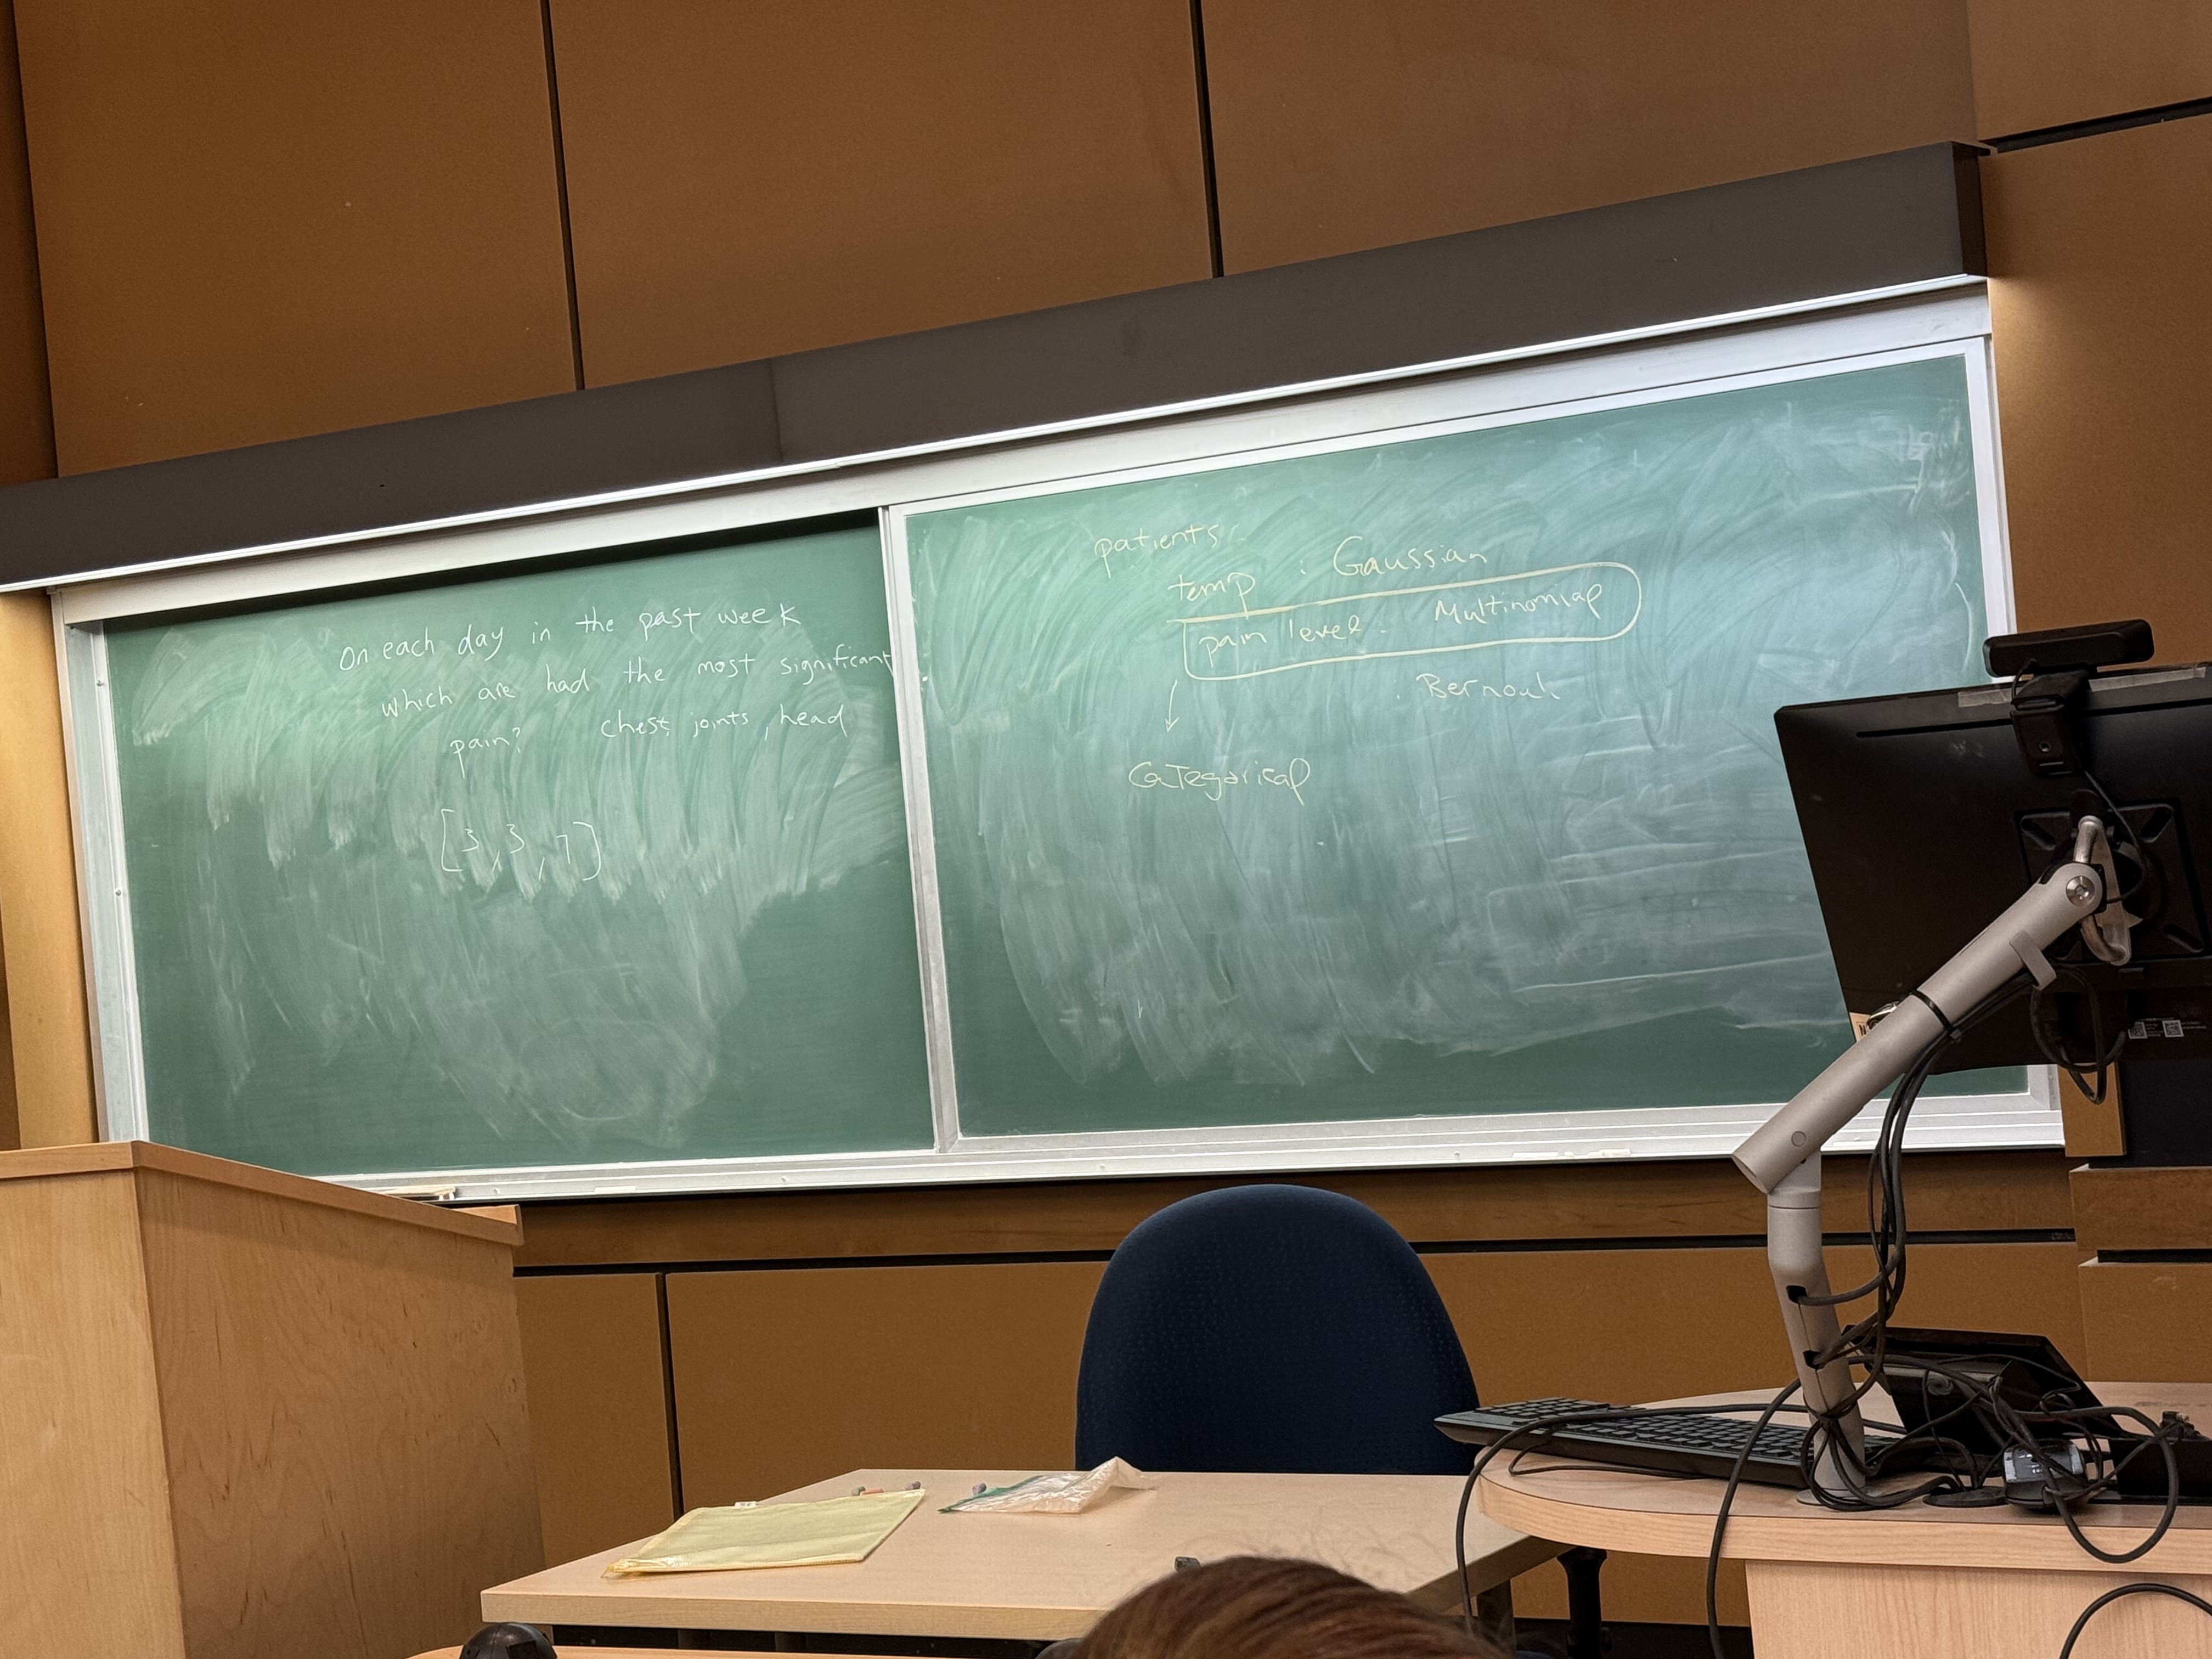 On each day in the past week
which are had the most significant
pain? chest, joints, head
[3, 3, 1]
patients:
temp : Gaussian
pain level : Multinomial
: Bernouli
Categorical